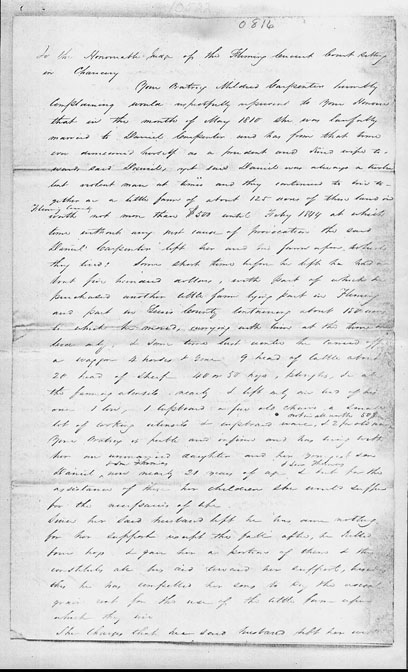 0816
To the Honorable Judge of the Fleming Circuit Court sitting
in Chancery
Your Oratrix Mildred Carpenter humbly
complaining would respectfully represent to Your Honor
that in the month of May 1810 she was lawfully
married to Daniel Carpenter and has from that time
ever demeaned herself as a prudent and kind wife to-
wards said Daniel, yet said Daniel was always a
but violent man at times and they continued to live to-
gether on a little farm of about 125 acres of land in
Fleming County
worth not more than $500 until Feby 1844 at which
time without any just cause of provocation the said
Daniel Carpenter left her and the farm upon which
they lived; Some short time before he left he had a-
bout five hundred dollars, with part of which he
purchased another little farm lying part in Fleming
and part in Lewis County containing about 150 acres
to which he moved, carrying with him at the time
& some time last winter he carried off
a waggon 4 horses & Gear 9 head of cattle about
20 head of sheep 40 or 50 hogs, & all
the farming utensils, nearly & left only one bed of his
own 1 1 cupboard a few old chairs, a small
lot of cooking utensils & cupboard ware
Your Oratrix is feeble and infirm and has living with
her an unmarried daughter and her youngest son
Daniel, now nearly 21 years of age & but for the
assistance of her children she would suffer
for the necessaries of life
Since her said husband left he has done nothing
for her support except this fall after he killed
four hogs & gave her a portion of them & this
constitutes all his aid toward her support,
this he has compelled her sons to pay the usual
grain rent for the use of the little farm upon
which they live
She Charges that her said husband left her